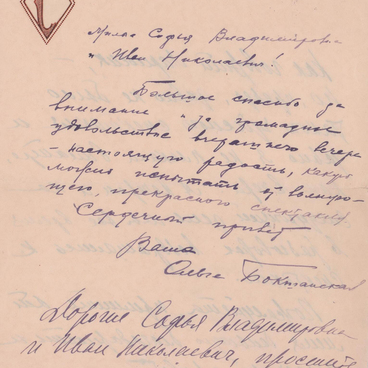 Милые Софья Владимировна
и Иван Николаевич!
Большое спасибо за
внимание и за громадное
удовольствие вчерашнего вечера
- настоящую радость, какую
можно испытать от
прекрасного спектакля.
Сердечный привет
Ваша
Ольга
Дорогие Софья Владимировна
и Иван Николаевич, простите